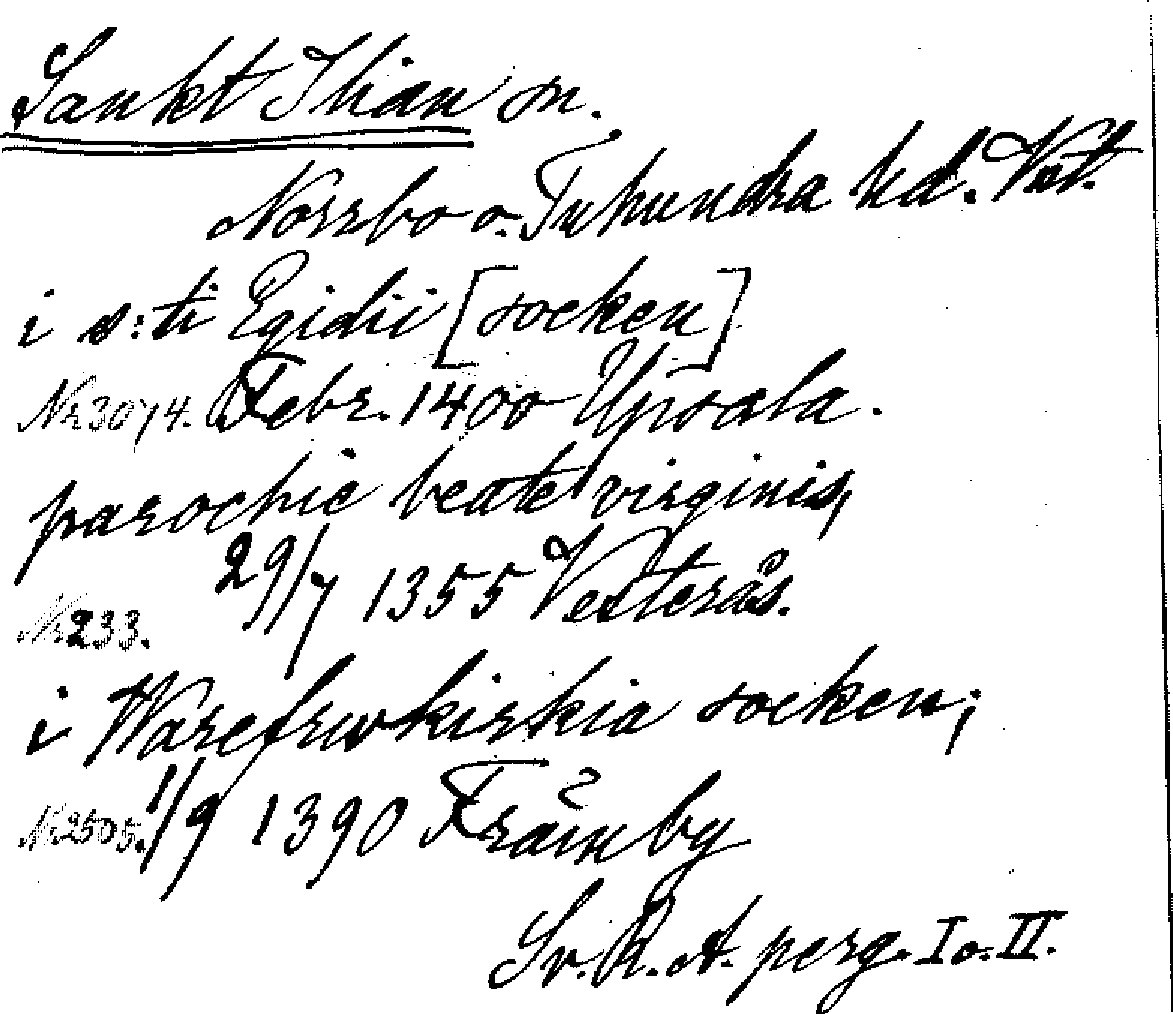 Sankt Ilian sn.
Norrbo o. Tuhundra hd. Vstl.
i s:ti Egidii [socken]
Nr 3074. Febr. 1400 Upsala.
parochie beate virginis,
29/7 1355 Vesterås.
Nr 233.
i Warefrwkirkia socken;
Nr 2505. 1/9 1390 Främby
Sv. R. A. perg. I o. II.